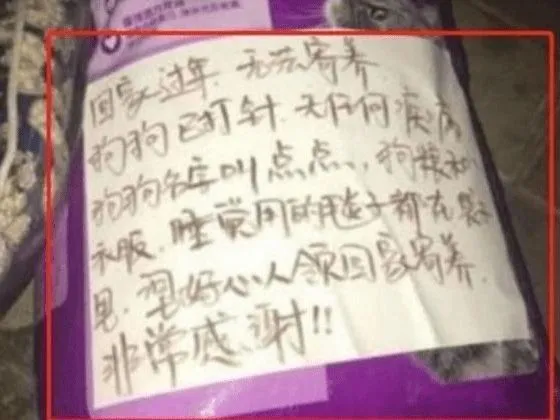 回家过年.无法寄养
狗狗已打针.无任何疾病
狗狗名字叫点点,狗粮和
衣服.睡觉用的毯子都在袋
里.望好心人领回家寄养.
非常感谢!!